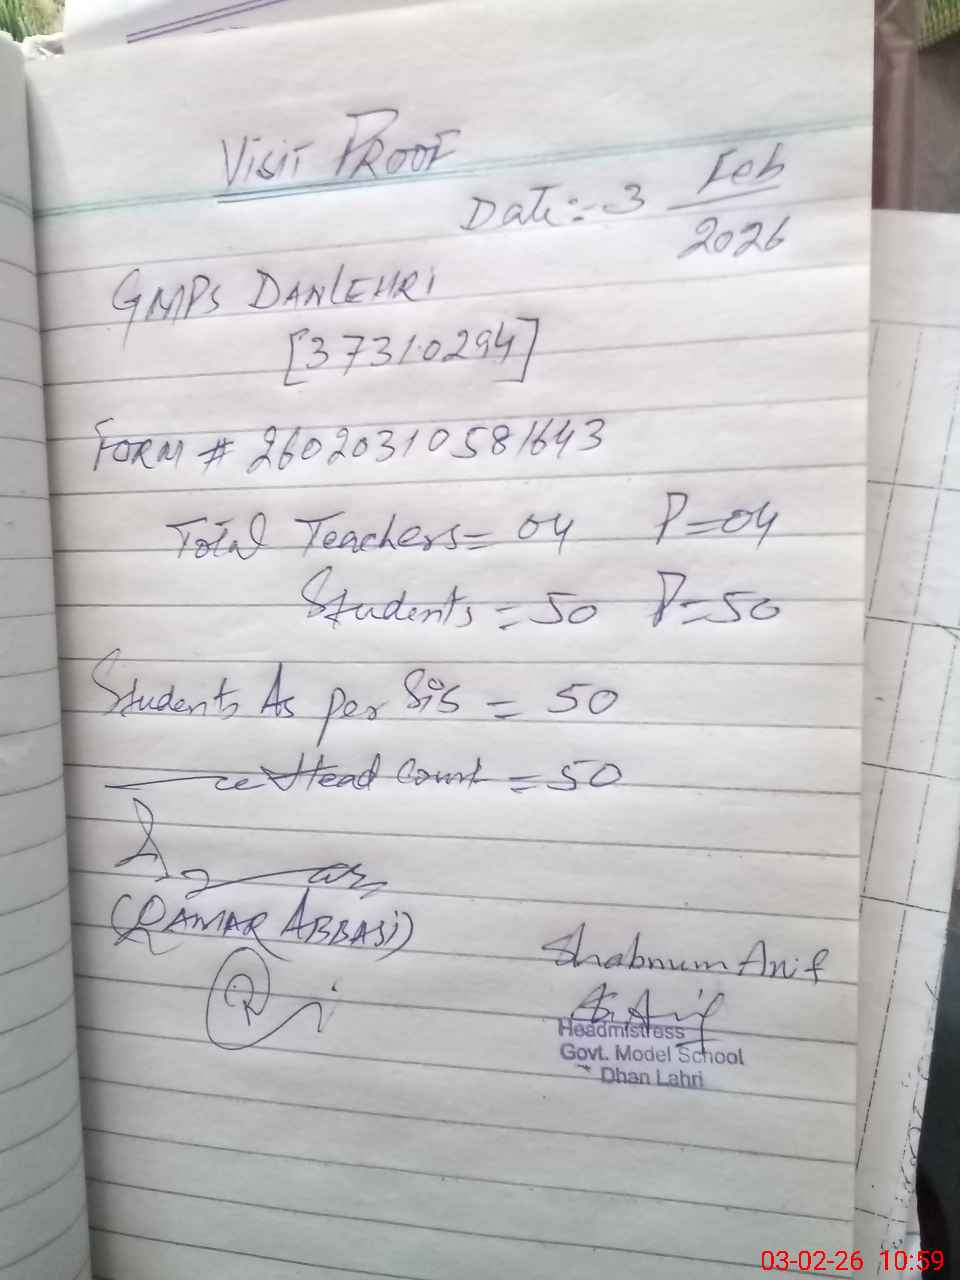 Visit PROOF
Date:- 3 Feb
2026
GMPS DANLEHRI
[37310294]
FORM # 26020310581643
Total Teachers = 04 P=04
Students = 50 P=50
Students As per Sis = 50
Head Count = 50
(QAMAR ABBASI)
Shabnum Anif
Headmistress
Govt. Model School
Dhan Lahri
03-02-26 10:59